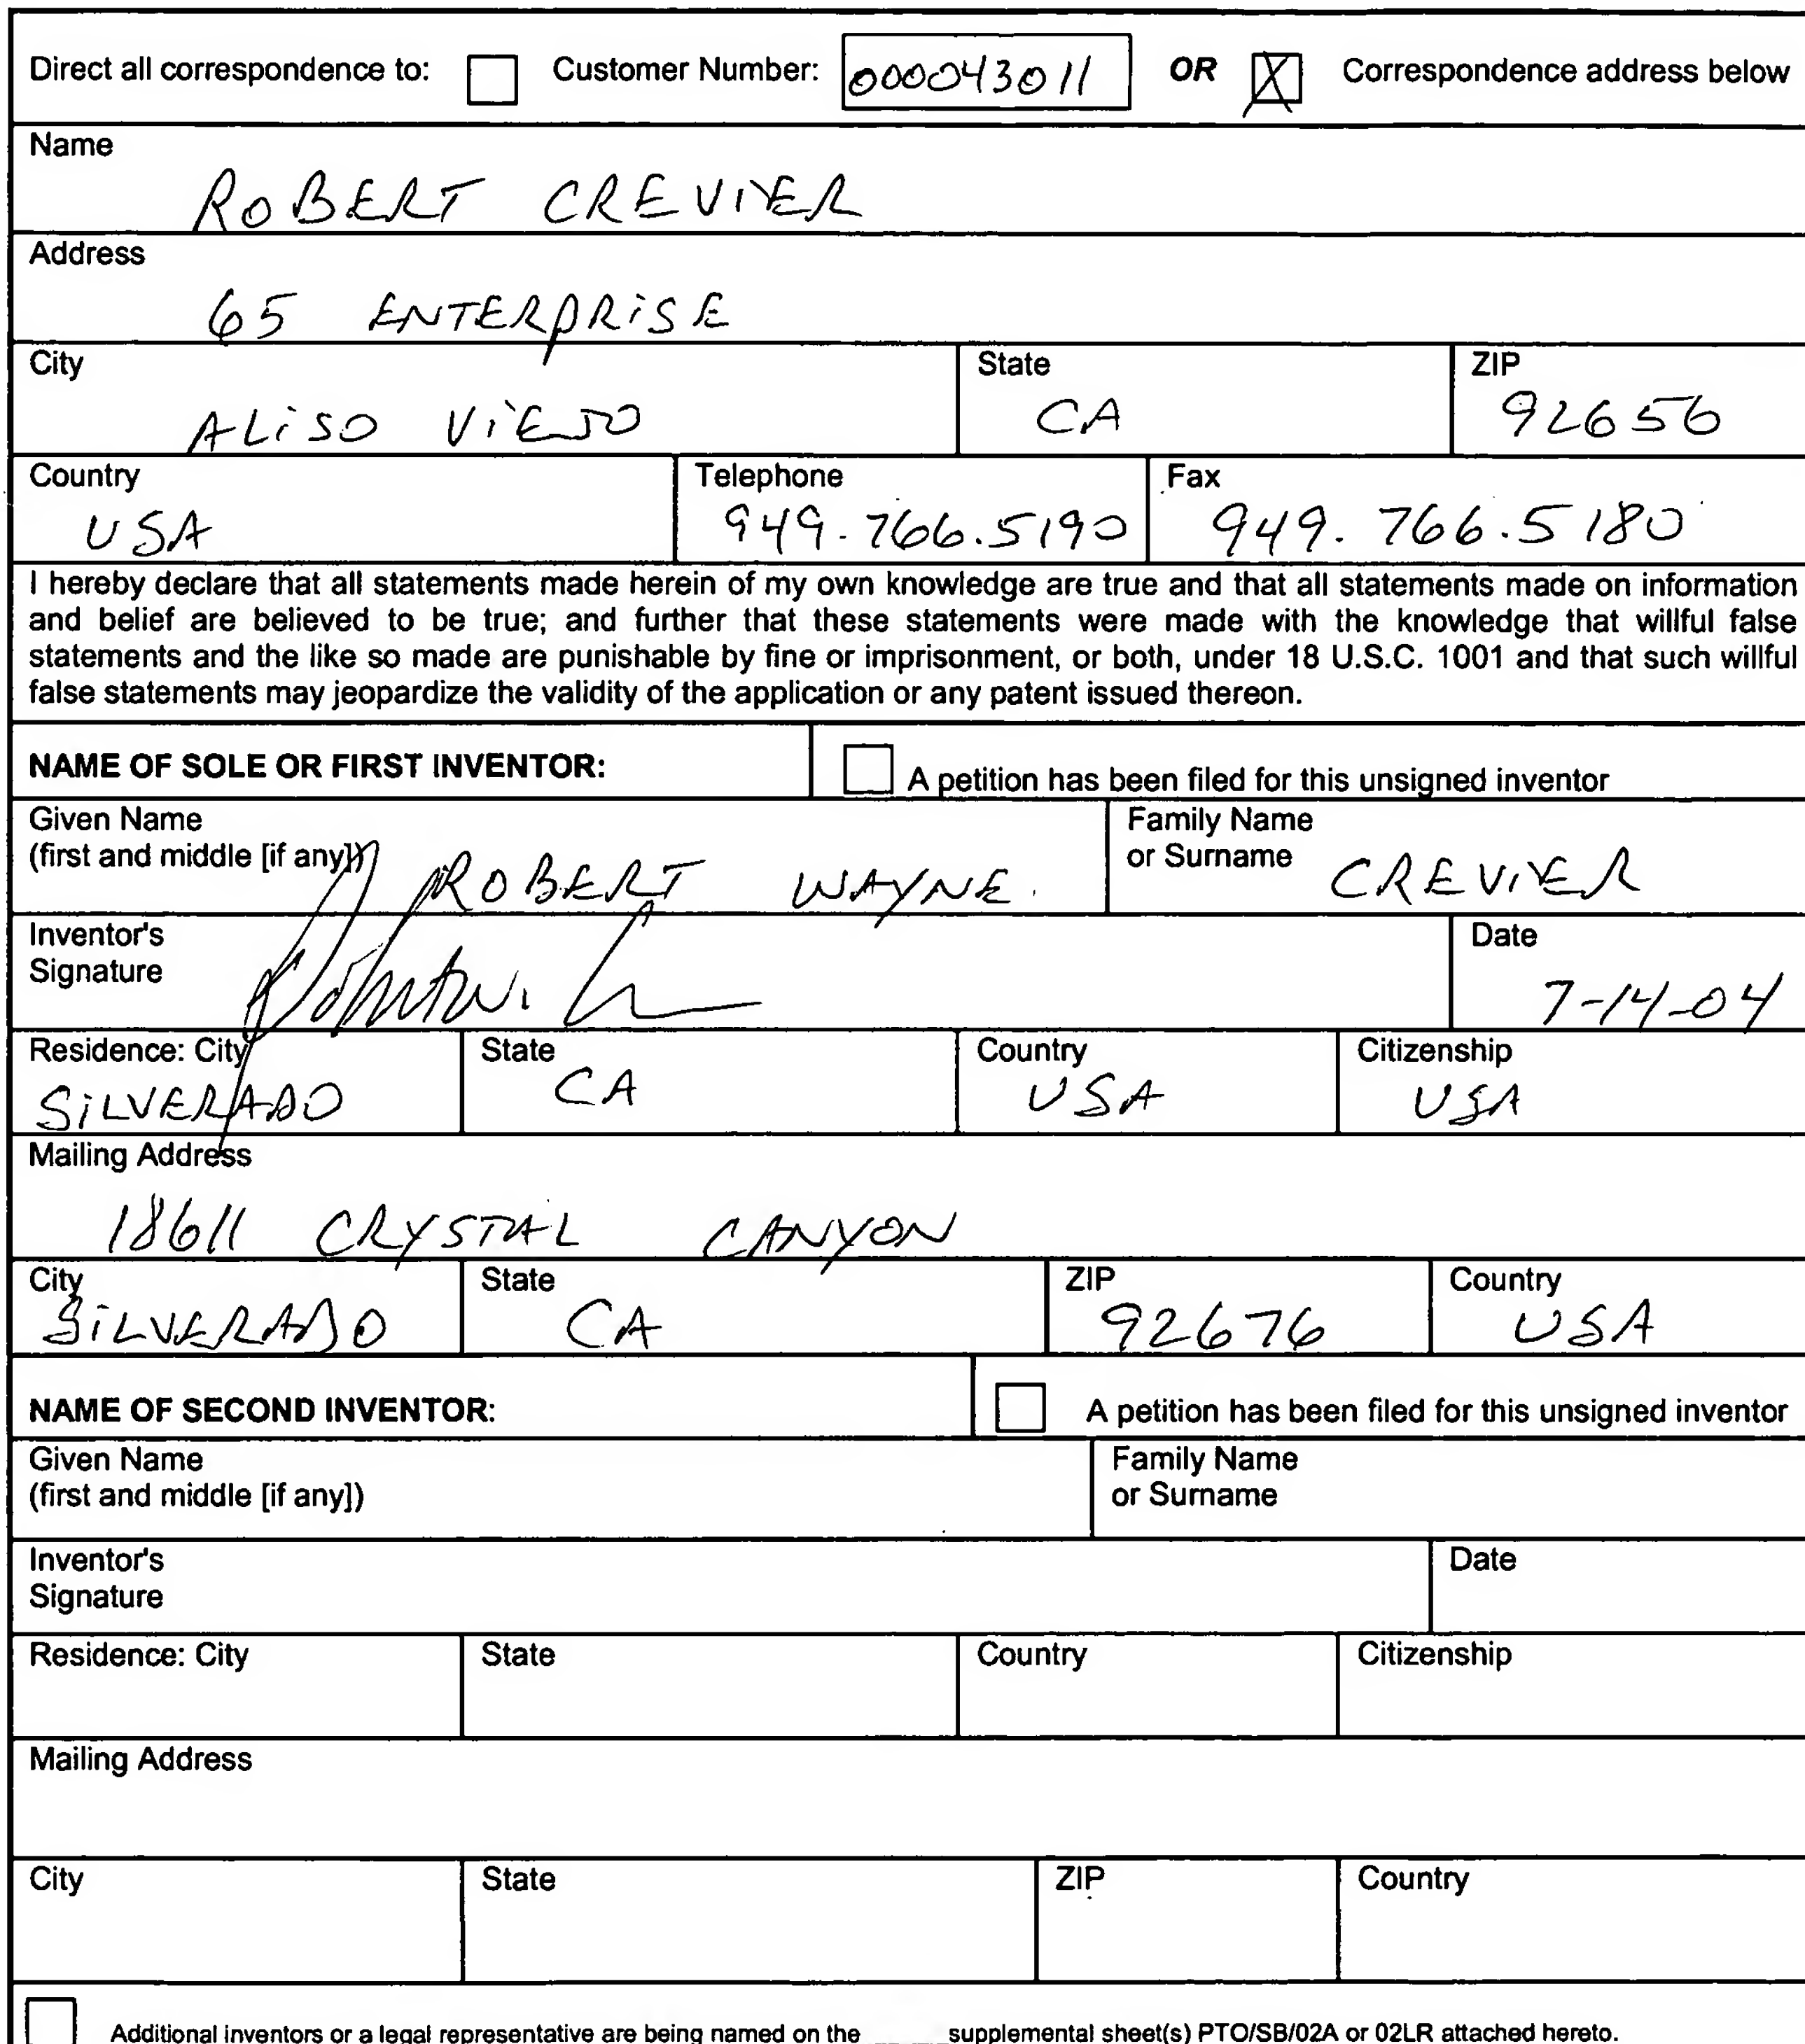 Direct all correspondence to: Customer Number: 000043011 OR X Correspondence address below
Name
ROBERT CREVIER
Address
65 ENTERPRISE
City State ZIP
ALISO VIEJO CA 92656
Country Telephone Fax
USA 949.766.5190 949.766.5180
I hereby declare that all statements made herein of my own knowledge are true and that all statements made on information
and belief are believed to be true; and further that these statements were made with the knowledge that willful false
statements and the like so made are punishable by fine or imprisonment, or both, under 18 U.S.C. 1001 and that such willful
false statements may jeopardize the validity of the application or any patent issued thereon.
NAME OF SOLE OR FIRST INVENTOR: A petition has been filed for this unsigned inventor
Given Name Family Name
(first and middle [if any]) ROBERT WAYNE. or Surname CREVIER
Inventor's Date
Signature 7-14-04
Residence: City State Country Citizenship
SILVERADO CA USA USA
Mailing Address
18611 CRYSTAL CANYON
City State ZIP Country
SILVERADO CA 92676 USA
NAME OF SECOND INVENTOR: A petition has been filed for this unsigned inventor
Given Name Family Name
(first and middle [if any]) or Surname
Inventor's Date
Signature
Residence: City State Country Citizenship
Mailing Address
City State ZIP Country
Additional inventors or a legal representative are being named on the ____ supplemental sheet(s) PTO/SB/02A or 02LR attached hereto.